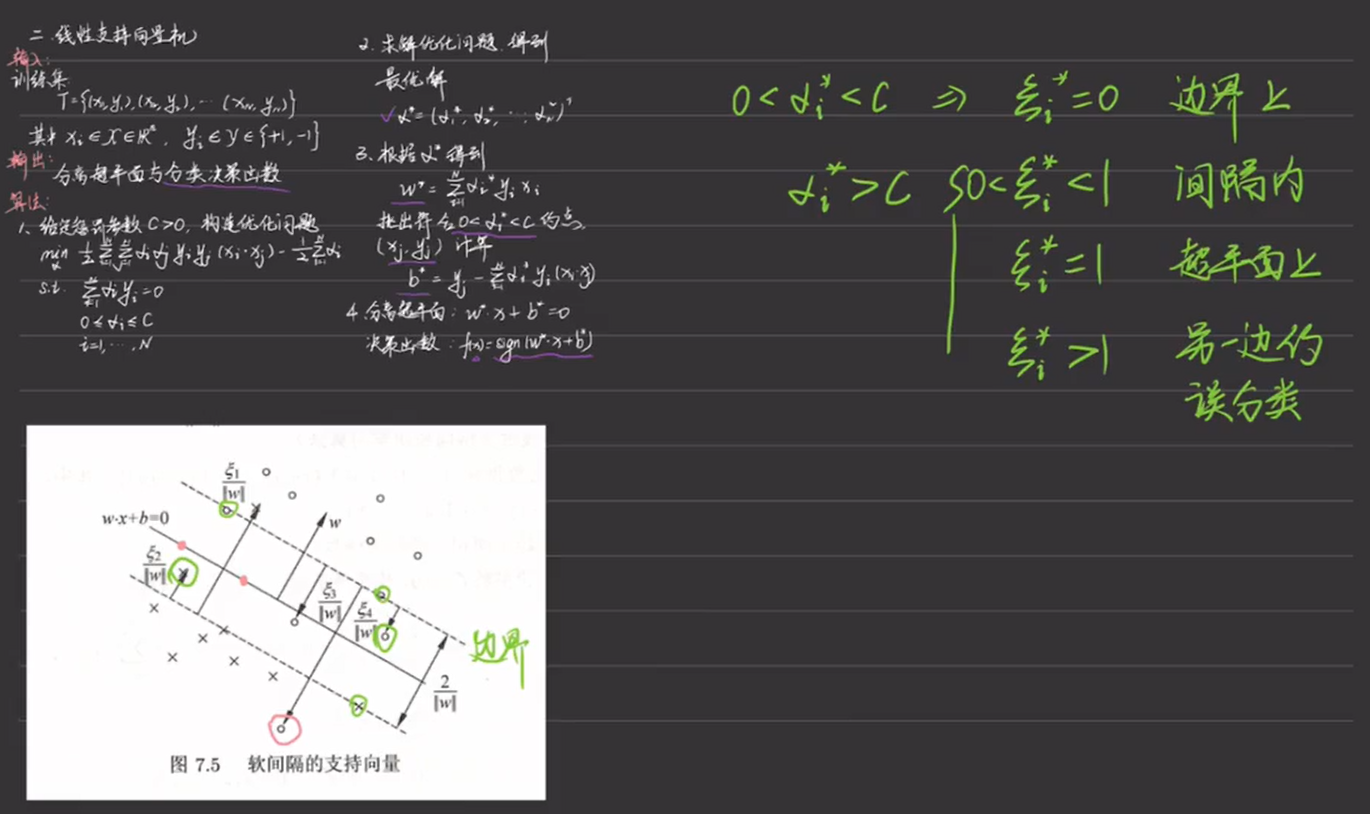 二.线性支持向量机
输入:
训练集
T={(x₁,y₁),(x₂,y₂),…(x_N,y_N)}
其中 xᵢ∈X∈Rⁿ, yᵢ∈Y∈{+1,-1}
输出:
分离超平面与分类决策函数
算法:
1、给定惩罚参数C>0,构造优化问题
min_α ½ΣᵢΣⱼ αᵢαⱼ yᵢyⱼ(xᵢ·xⱼ) - ½Σαᵢ
s.t. Σαᵢyᵢ=0
0≤αᵢ≤C
i=1,…,N
2、求解优化问题,得到
最优解
✓α*=(α₁*,α₂*,…,α_N*)ᵀ
3、根据α*得到
w*=Σαᵢ*yᵢxᵢ
找出符合0<αᵢ*<C的点
(xⱼ,yⱼ)计算
b*=yⱼ-Σαᵢ*yᵢ(xᵢ·xⱼ)
4.分离超平面:w*·x+b*=0
决策函数:f(x)=sign(w*·x+b*)
0<αᵢ*<C ⇒ ξᵢ*=0 边界上
αᵢ*>C 0<ξᵢ*<1 间隔内
ξᵢ*=1 超平面上
ξᵢ*>1 另一边的
误分类
ξ₁/‖w‖
w·x+b=0
w
ξ₂/‖w‖
ξ₃/‖w‖
ξ₄/‖w‖
边界
2/‖w‖
图 7.5 软间隔的支持向量